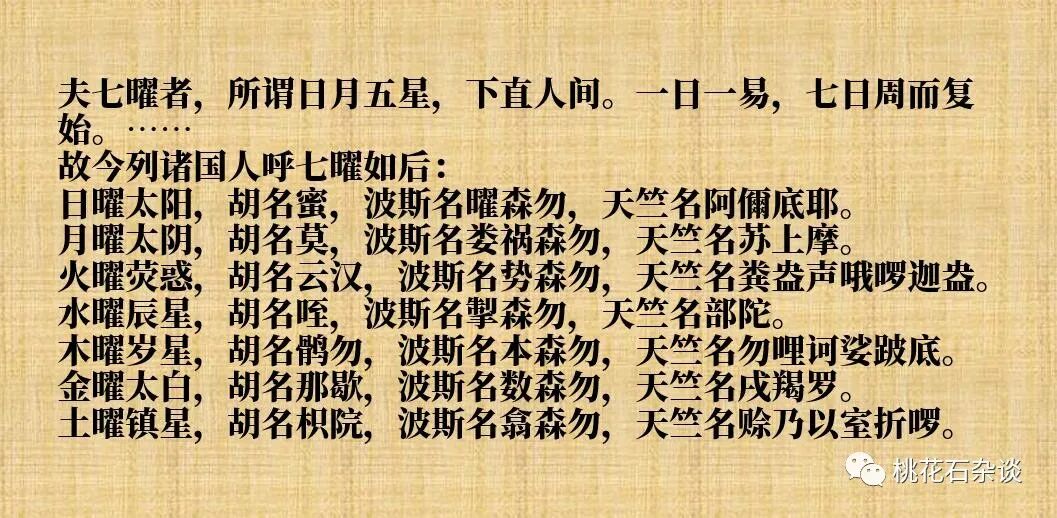 夫七曜者，所谓日月五星，下直人间。一日一易，七日周而复
始。……
故今列诸国人呼七曜如后：
日曜太阳，胡名蜜，波斯名曜森勿，天竺名阿儞底耶。
月曜太阴，胡名莫，波斯名娄祸森勿，天竺名苏上摩。
火曜荧惑，胡名云汉，波斯名势森勿，天竺名粪盎声哦啰迦盎。
水曜辰星，胡名咥，波斯名掣森勿，天竺名部陀。
木曜岁星，胡名鹘勿，波斯名本森勿，天竺名勿哩诃娑跛底。
金曜太白，胡名那歇，波斯名数森勿，天竺名戌羯罗。
土曜镇星，胡名枳院，波斯名翕森勿，天竺名赊乃以室折啰。
桃花石杂谈